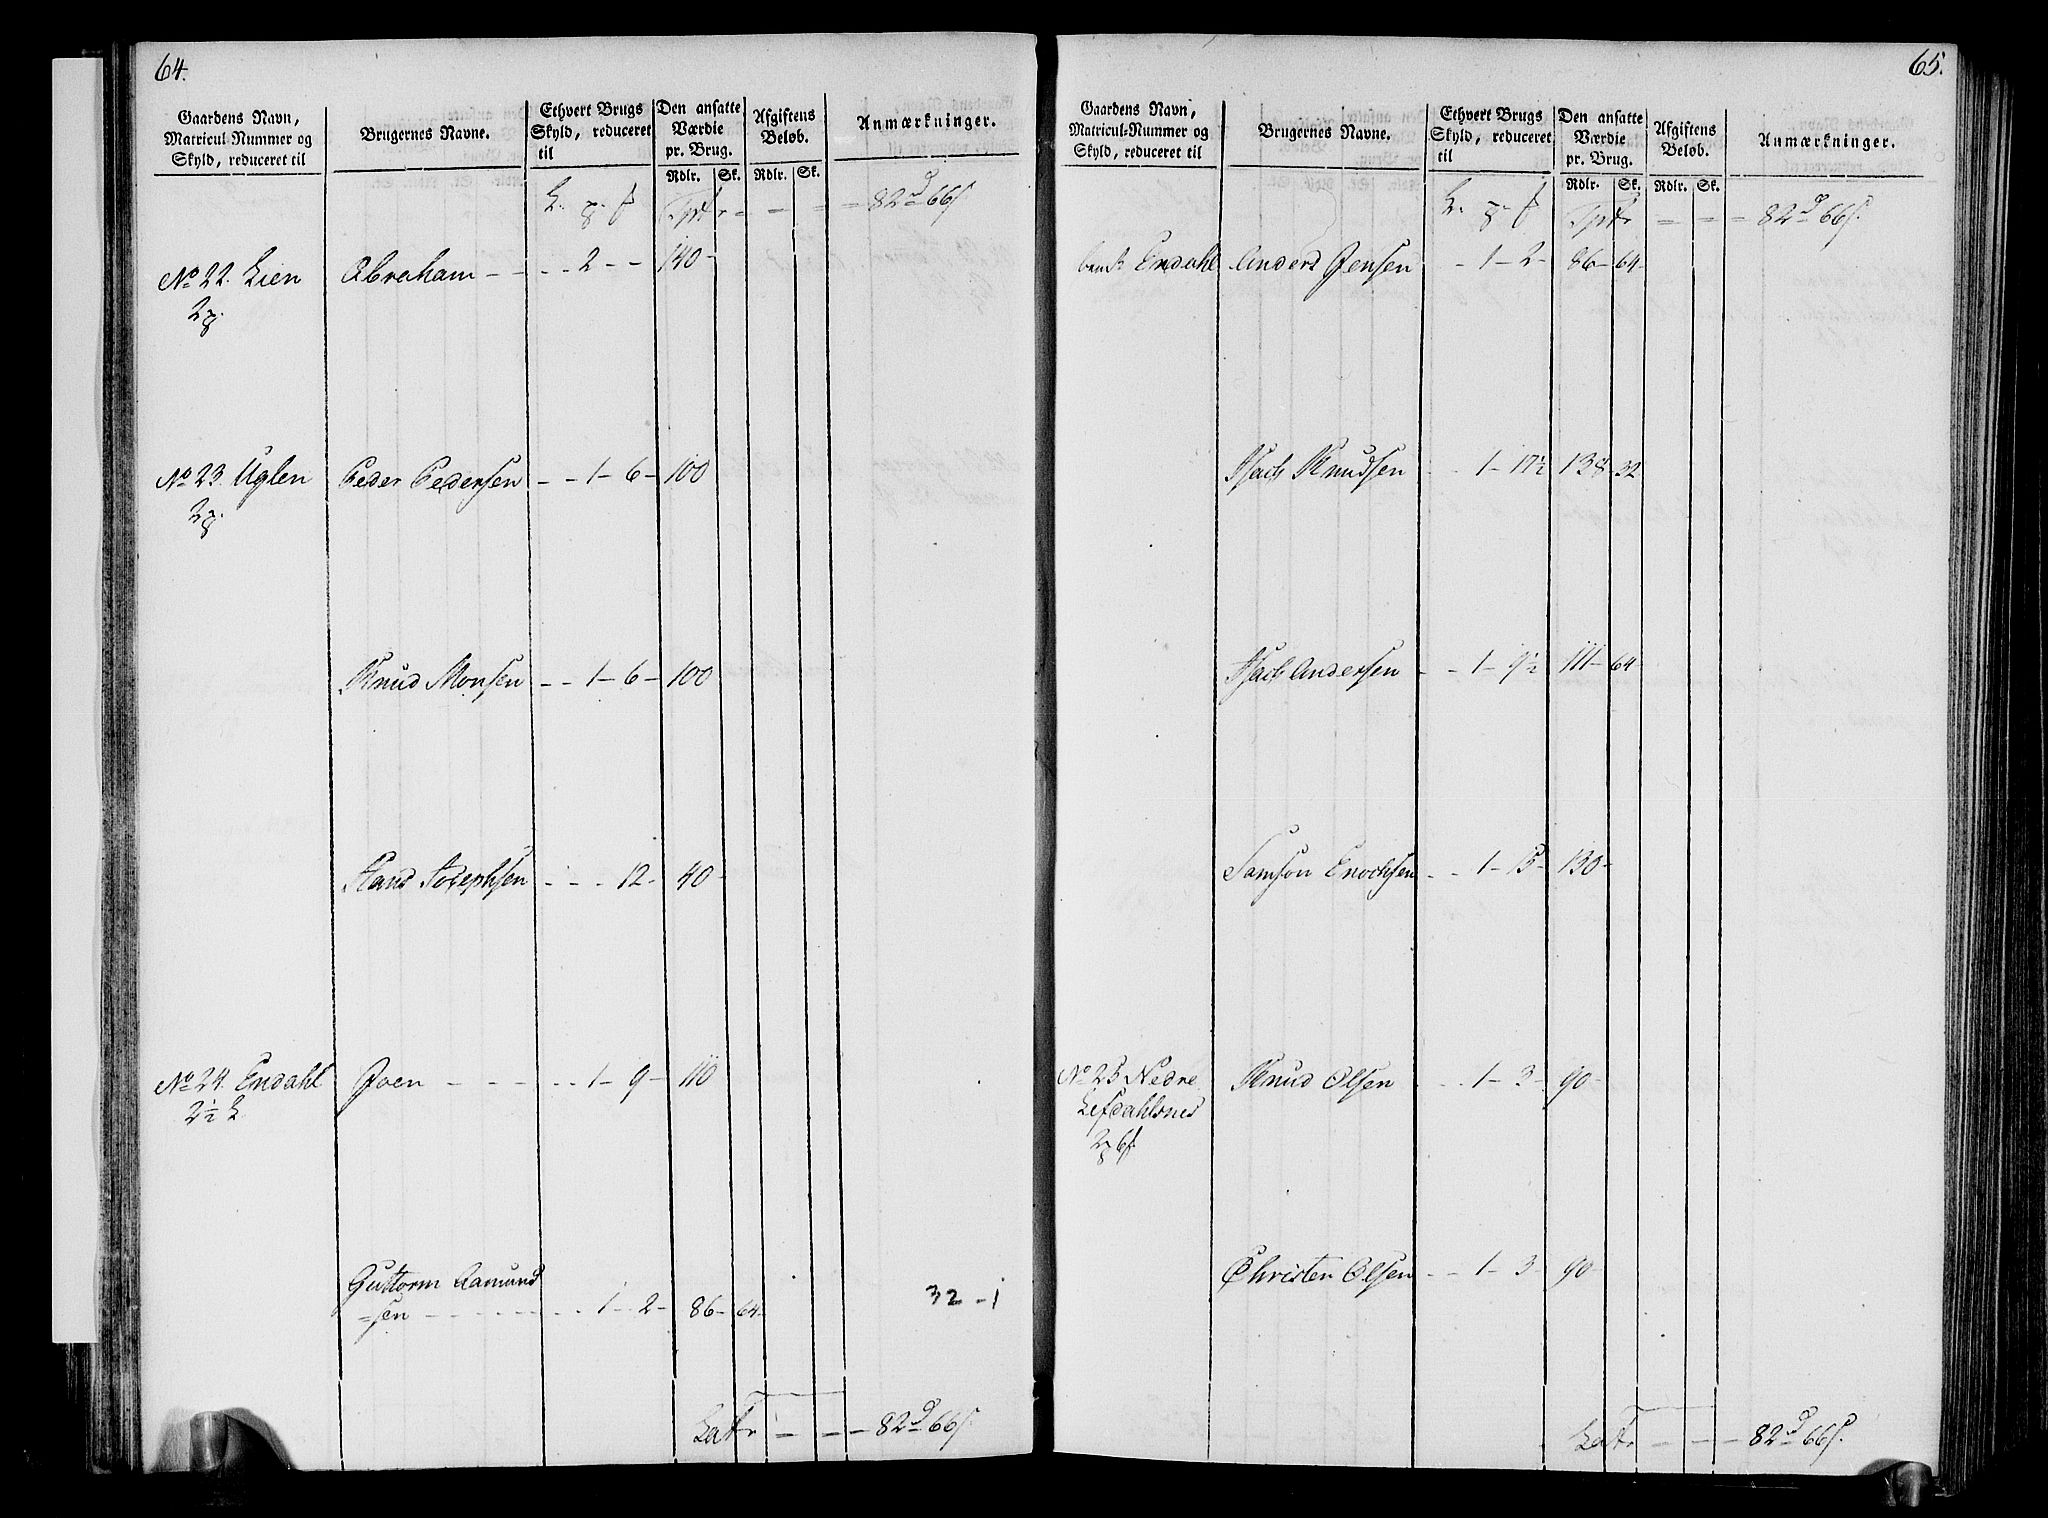 64.
Gaardens Navn, Matricul-Nummer og Skyld, reduceret til
Brugernes Navne.
Ethvert Brugs Skyld, reduceret til
Den ansatte Værdie pr. Brug.
Afgiftens Beløb.
Anmærkninger.
Rdlr. Sk. Rdlr. Sk.
Tptr - - - - 82 d 66 s.
No 22. Lien Abraham - - - - 2 - - 140 -
2
No 23. Uglen Peder Pedersen - - 1 - 6 - 100
2
Knud Monsen - - 1 - 6 - 100
Hans Josephsen - - - 12 - 40 -
No 24. Endahl Joen - - - - - 1 - 9 - 110
2½ L
Guttorm Aamund
=sen - - - - - - 1 - 2 - 86 - 64 -
32 - 1
Latr - - - 82 d 66 s.
65.
Gaardens Navn, Matricul-Nummer og Skyld, reduceret til
Brugernes Navne.
Ethvert Brugs Skyld, reduceret til
Den ansatte Værdie pr. Brug.
Afgiftens Beløb.
Anmærkninger.
Rdlr. Sk. Rdlr. Sk.
Tptr - - - 82 d 66 s.
Endahl Anders Jensen - 1 - 2 - 86 - 64 -
Isach Knudsen - - 1 - 17½ 138 - 32
Isach Andersen - - 1 - 9½ 111 - 64 -
Samson Enochsen - - 1 - 15 - 130 -
No 25 Nedre Knud Olsen - - 1 - 3 - 90 -
Lefdahlsnes
2 6
Christen Olsen - - 1 - 3 - 90 -
Latr - - - 82 d 66 s.